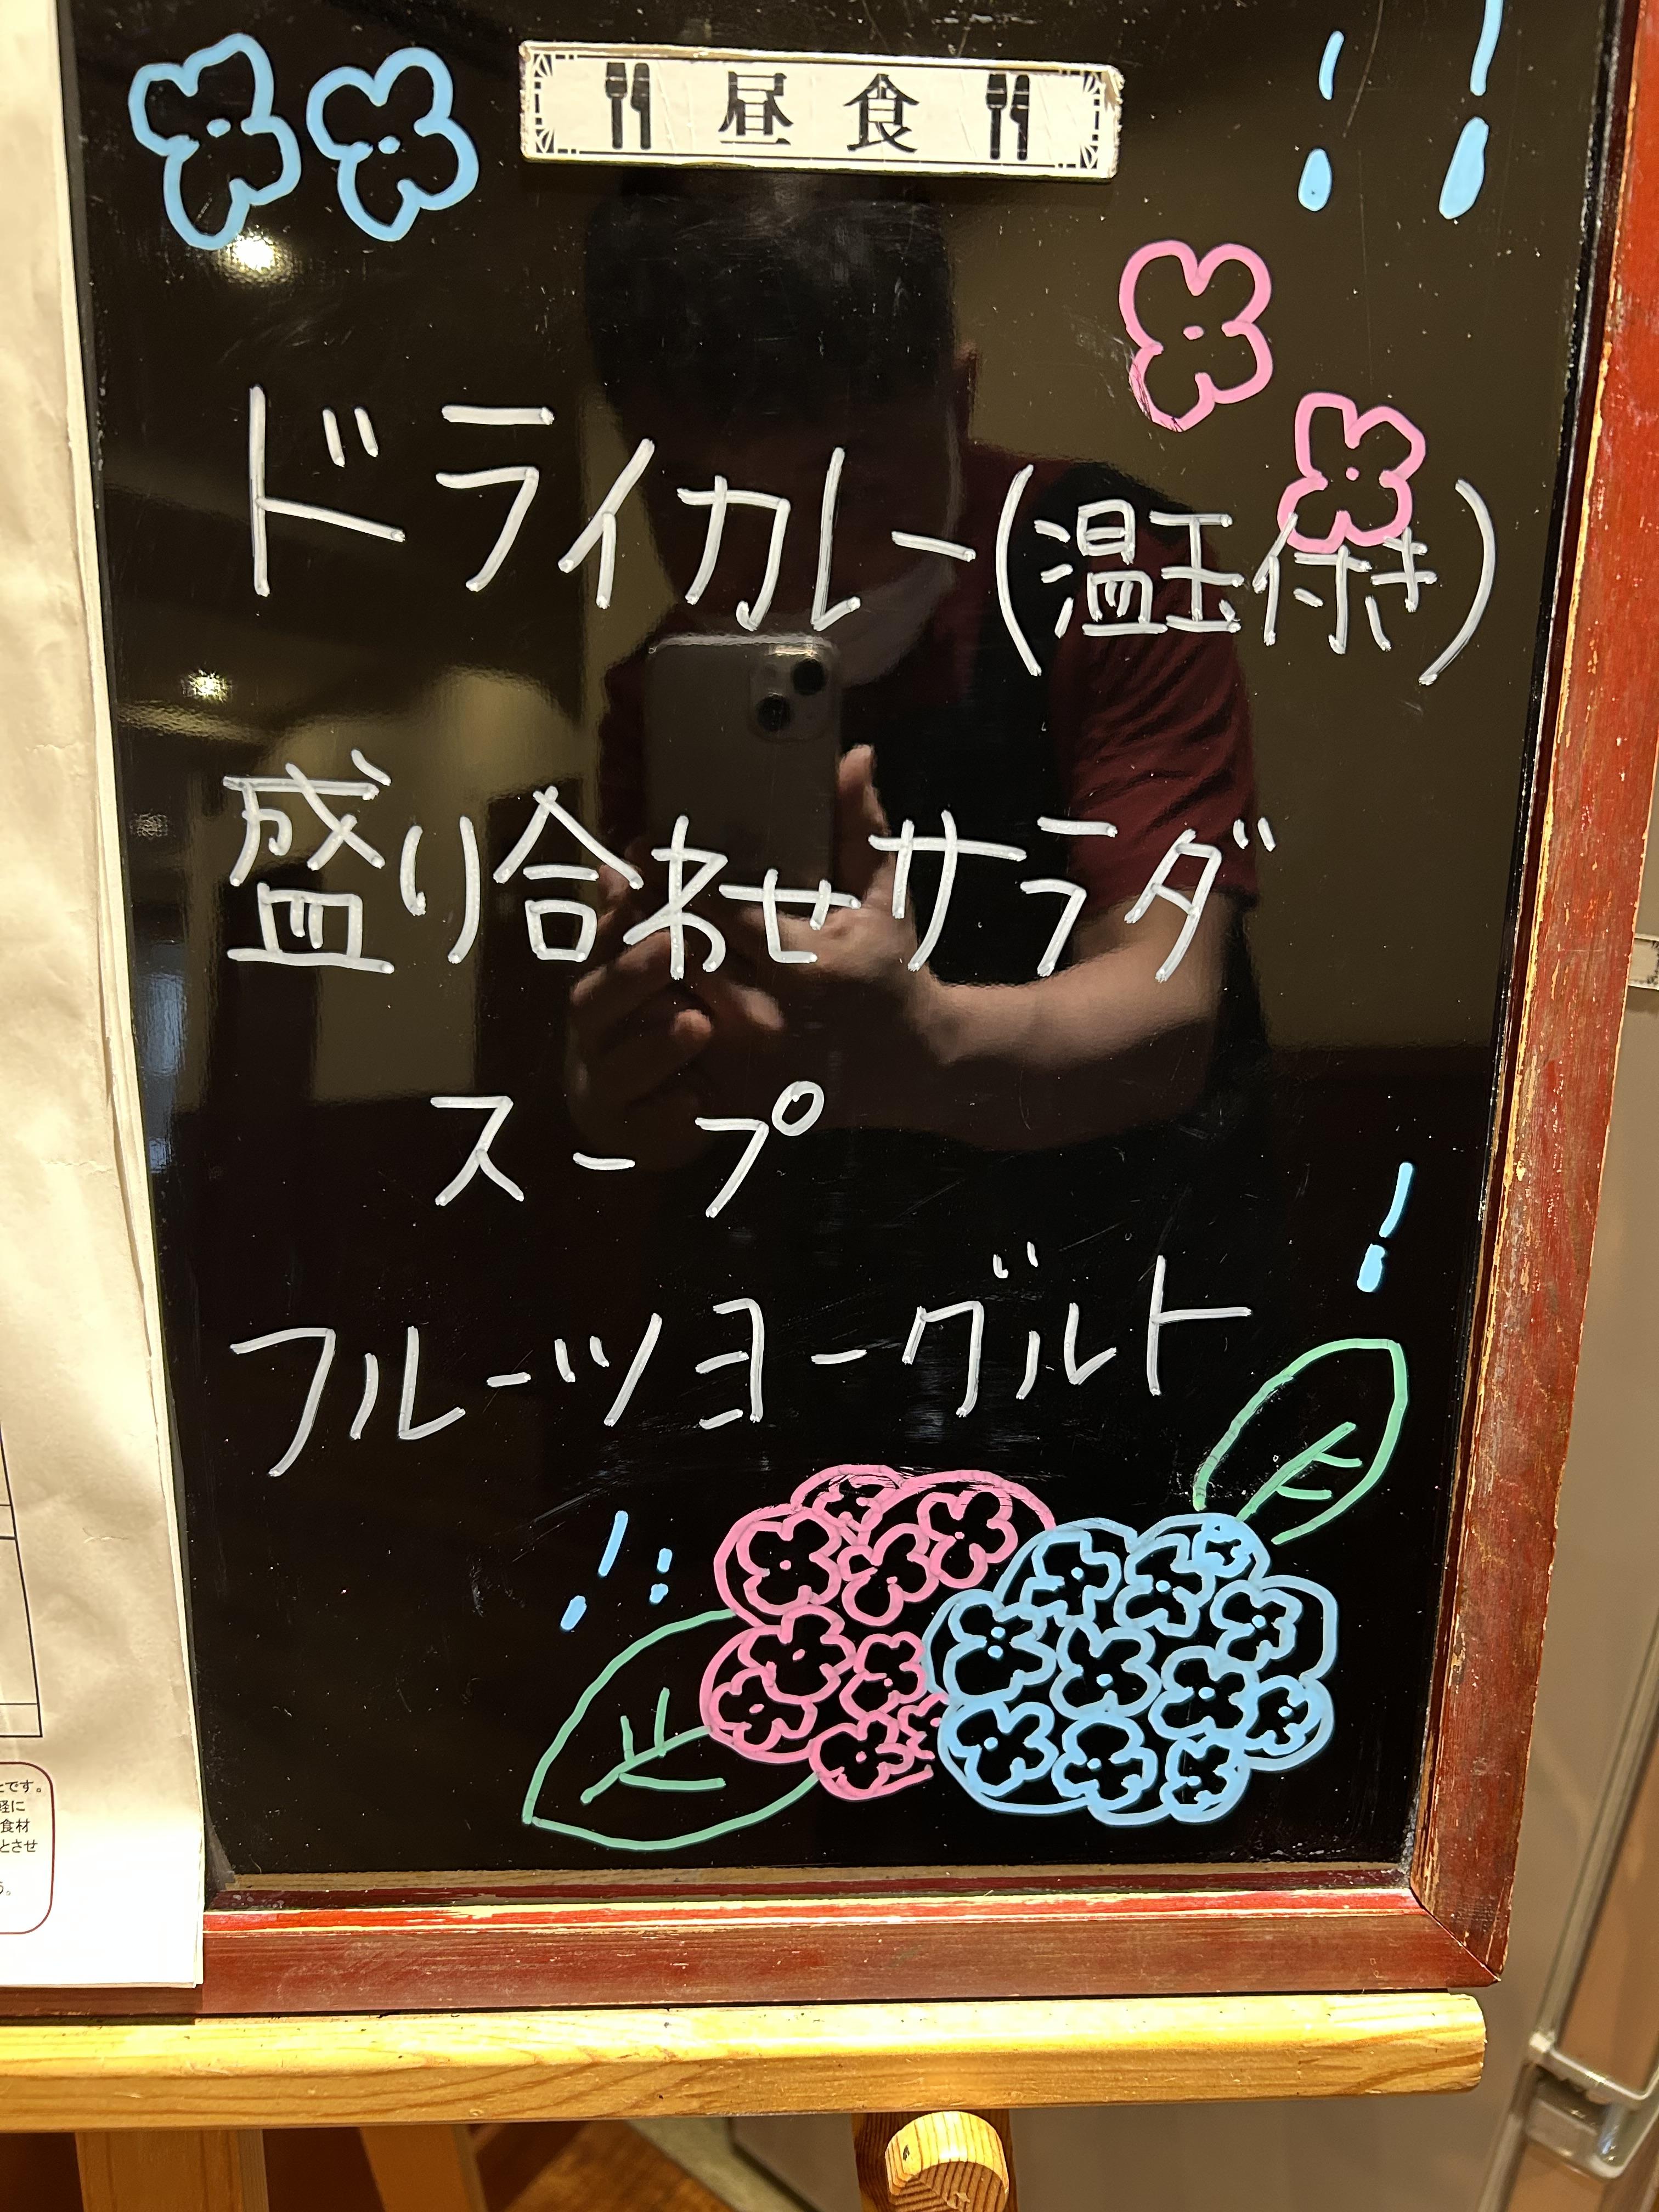 昼食
ドライカレー(温玉付き)
盛り合わせサラダ
スープ
フルーツヨーグルト
とです。
軽に
食材
とさせ
う。